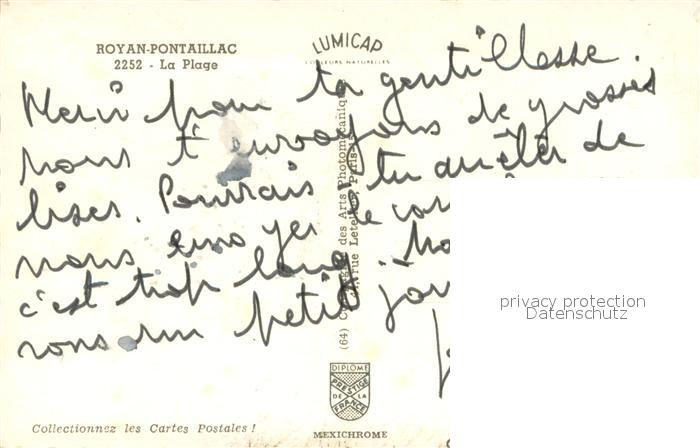 ROYAN-PONTAILLAC
2252 - La Plage
LUMICAP
COULEURS NATURELLES
Merci pour ta gentillesse
nous t'envoyons de grosses
bises. Pourrais tu arrêter de
nous envoyer le
c'est trop long.
rons un petit
(64) Compagnie des Arts Photomécaniques
rue Letellier, Paris-15
DIPLÔME
PRESTIGE
DE LA
FRANCE
MEXICHROME
Collectionnez les Cartes Postales !
privacy protection
Datenschutz